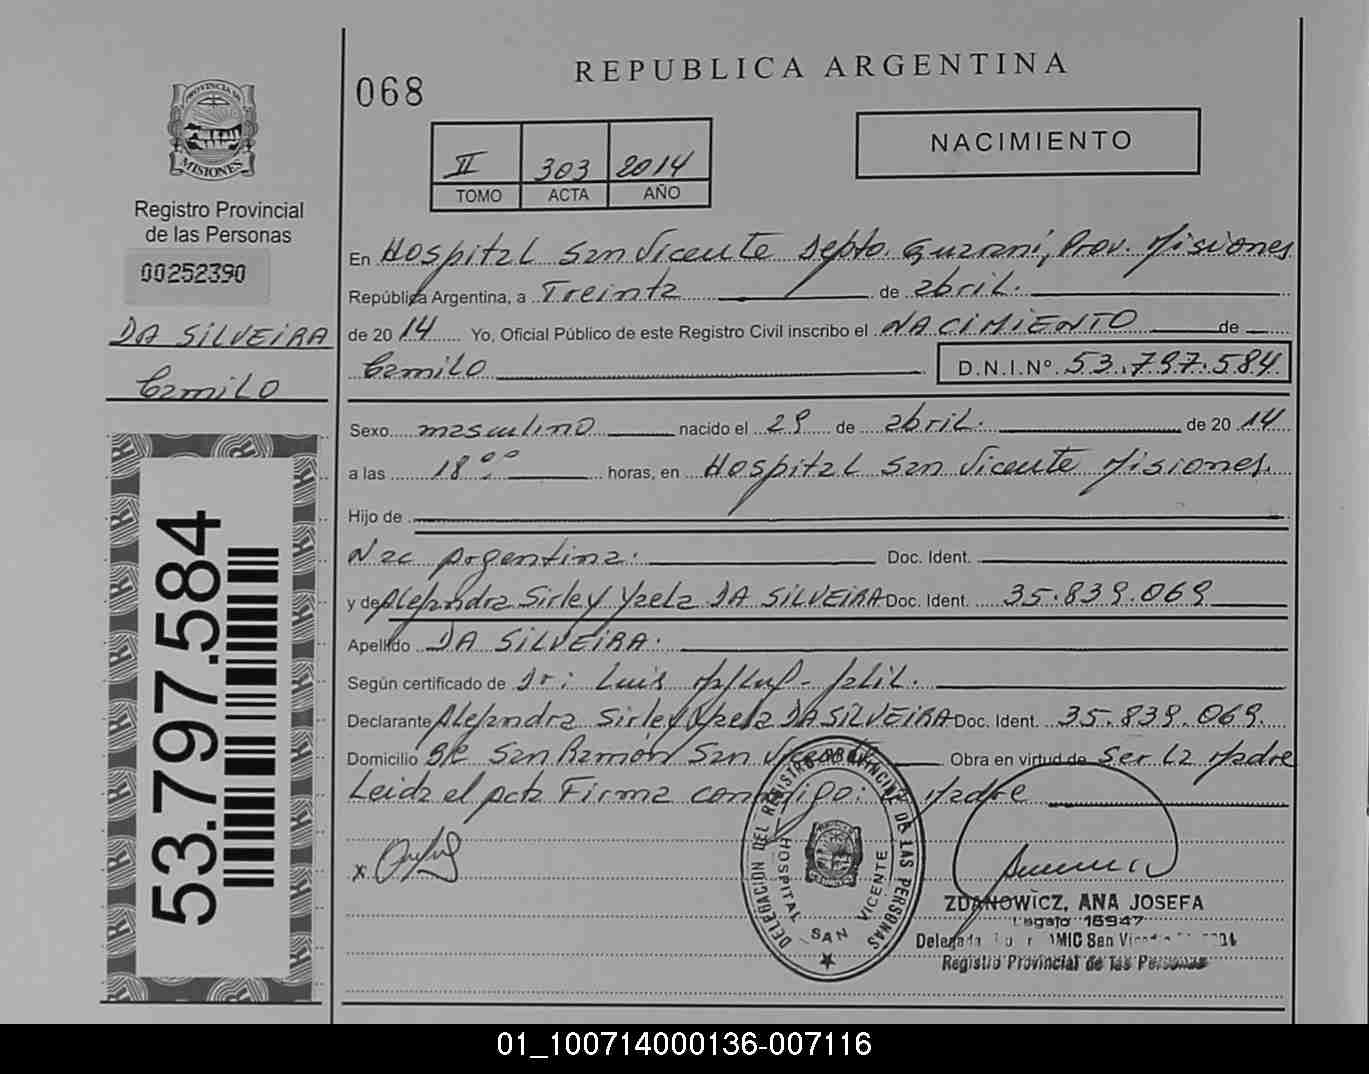 REPUBLICA ARGENTINA
068
NACIMIENTO
II 303 2014
TOMO ACTA AÑO
PROVINCIA DE
MISIONES
Registro Provincial
de las Personas
00252390
DA SILVEIRA
Camilo
53.797.584
En Hospital San Vicente Depto. Guarani, Prov. Misiones
República Argentina, a Treinta de abril.
de 2014 Yo, Oficial Público de este Registro Civil inscribo el NACIMIENTO de
Camilo D.N.I.Nº. 53.797.584
Sexo masculino nacido el 29 de abril. de 2014
a las 18 ºº horas, en Hospital San Vicente Misiones.
Hijo de
Nac Argentina. Doc. Ident.
y de Alejandra Sirley Yzela DA SILVEIRA Doc. Ident. 35.839.069
Apellido DA SILVEIRA.
Según certificado de Dr: Luis
Declarante Alejandra Sirley Yzela DA SILVEIRA Doc. Ident. 35.839.069.
Domicilio San Ramón San Vicente Obra en virtud de Ser La Madre
Leida el acta Firma conmigo: La Madre
x
DELEGACION DEL REGISTRO PROVINCIAL DE LAS PERSONAS
HOSPITAL SAN VICENTE
ZDANOWICZ, ANA JOSEFA
Legajo 16947
Registro Provincial de las Personas
01_100714000136-007116